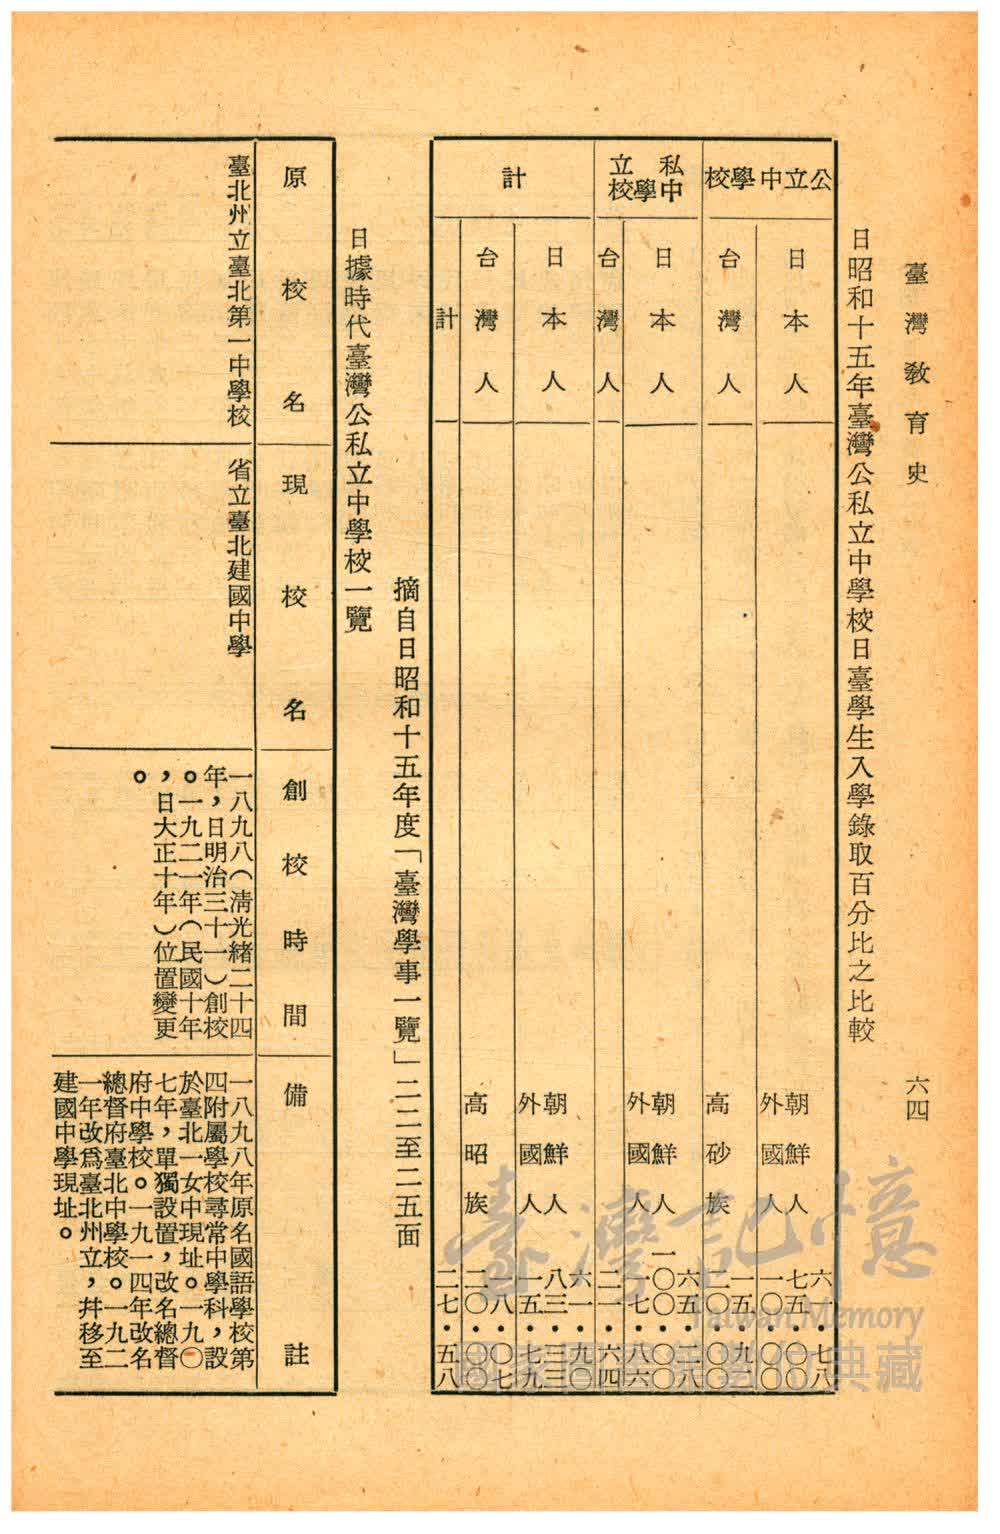 臺灣教育史
六四
日昭和十五年臺灣公私立中學校日臺學生入學錄取百分比之比較
公立中學校
日本人
六一・七八
朝鮮人
七五・〇〇
外國人
一〇・〇〇
台灣人
一五・九二
高砂族
二〇・〇〇
私立中學校
日本人
六五・二八
朝鮮人
一〇〇・〇〇
外國人
一七・八六
台灣人
二一・六四
計
日本人
六一・九〇
朝鮮人
八三・三三
外國人
一五・七九
台灣人
一八・〇七
高昭族
二〇・〇〇
計
二七・五八
摘自日昭和十五年度「臺灣學事一覽」二二至二五面
日據時代臺灣公私立中學校一覽
原校名
現校名
創校時間
備註
臺北州立臺北第一中學校
省立臺北建國中學
一八九八（清光緒二十四
年，日明治三十一）創校
。一九二一年（民國十年
，日大正十年）位置變更
。
一八九八年原名國語學校第
四附屬學校尋常中學科，設
於臺北一女中現址。一九〇
七年，單獨設置，改名總督
府中學校。一九一四年改名
總督府臺北中學校。一九二
一年改爲臺北州立，幷移至
建國中學現址。
臺灣記憶
Taiwan Memory
國家圖書館數位典藏